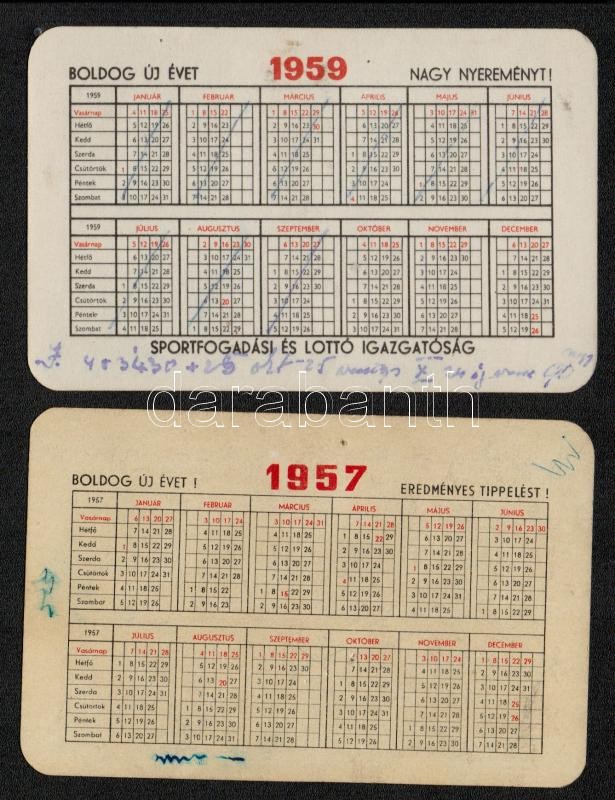 BOLDOG ÚJ ÉVET 1959 NAGY NYEREMÉNYT!
1959 JANUÁR FEBRUÁR MÁRCIUS ÁPRILIS MAJUS JÚNIUS
Vasárnap 4 11 18 25 1 8 15 22 1 8 15 22 29 5 12 19 26 3 10 17 24 31 7 14 21 28
Hétfő 5 12 19 26 2 9 16 23 2 9 16 23 30 6 13 20 27 4 11 18 25 1 8 15 22 29
Kedd 6 13 20 27 3 10 17 24 3 10 17 24 31 7 14 21 28 5 12 19 26 2 9 16 23 30
Szerda 7 14 21 28 4 11 18 25 4 11 18 25 1 8 15 22 29 6 13 20 27 3 10 17 24
Csütörtök 1 8 15 22 29 5 12 19 26 5 12 19 26 2 9 16 23 30 7 14 21 28 4 11 18 25
Péntek 2 9 16 23 30 6 13 20 27 6 13 20 27 3 10 17 24 1 8 15 22 29 5 12 19 26
Szombat 3 10 17 24 31 7 14 21 28 7 14 21 28 4 11 18 25 2 9 16 23 30 6 13 20 27
1959 JÚLIUS AUGUSZTUS SZEPTEMBER OKTÓBER NOVEMBER DECEMBER
Vasárnap 5 12 19 26 2 9 16 23 30 6 13 20 27 4 11 18 25 1 8 15 22 29 6 13 20 27
Hétfő 6 13 20 27 3 10 17 24 31 7 14 21 28 5 12 19 26 2 9 16 23 30 7 14 21 28
Kedd 7 14 21 28 4 11 18 25 1 8 15 22 29 6 13 20 27 3 10 17 24 1 8 15 22 29
Szerda 1 8 15 22 29 5 12 19 26 2 9 16 23 30 7 14 21 28 4 11 18 25 2 9 16 23 30
Csütörtök 2 9 16 23 30 6 13 20 27 3 10 17 24 1 8 15 22 29 5 12 19 26 3 10 17 24 31
Péntek 3 10 17 24 31 7 14 21 28 4 11 18 25 2 9 16 23 30 6 13 20 27 4 11 18 25
Szombat 4 11 18 25 1 8 15 22 29 5 12 19 26 3 10 17 24 31 7 14 21 28 5 12 19 26
SPORTFOGADÁSI ÉS LOTTÓ IGAZGATÓSÁG
darabanth
BOLDOG ÚJ ÉVET ! 1957 EREDMÉNYES TIPPELÉST !
1957 JANUÁR FEBRUÁR MÁRCIUS ÁPRILIS MÁJUS JÚNIUS
Vasárnap 6 13 20 27 3 10 17 24 3 10 17 24 31 7 14 21 28 5 12 19 26 2 9 16 23 30
Hétfő 7 14 21 28 4 11 18 25 4 11 18 25 1 8 15 22 29 6 13 20 27 3 10 17 24
Kedd 1 8 15 22 29 5 12 19 26 5 12 19 26 2 9 16 23 30 7 14 21 28 4 11 18 25
Szerda 2 9 16 23 30 6 13 20 27 6 13 20 27 3 10 17 24 1 8 15 22 29 5 12 19 26
Csütörtök 3 10 17 24 31 7 14 21 28 7 14 21 28 4 11 18 25 2 9 16 23 30 6 13 20 27
Péntek 4 11 18 25 1 8 15 22 1 8 15 22 29 5 12 19 26 3 10 17 24 31 7 14 21 28
Szombat 5 12 19 26 2 9 16 23 2 9 16 23 30 6 13 20 27 4 11 18 25 1 8 15 22 29
1957 JÚLIUS AUGUSZTUS SZEPTEMBER OKTÓBER NOVEMBER DECEMBER
Vasárnap 7 14 21 28 4 11 18 25 1 8 15 22 29 13 20 27 3 10 17 24 1 8 15 22 29
Hétfő 1 8 15 22 29 5 12 19 26 2 9 16 23 30 7 14 21 28 4 11 18 25 2 9 16 23 30
Kedd 2 9 16 23 30 6 13 20 27 3 10 17 24 1 8 15 22 29 5 12 19 26 3 10 17 24 31
Szerda 3 10 17 24 31 7 14 21 28 4 11 18 25 2 9 16 23 30 6 13 20 27 4 11 18 25
Csütörtök 4 11 18 25 1 8 15 22 29 5 12 19 26 3 10 17 24 31 7 14 21 28 5 12 19 26
Péntek 5 12 19 26 2 9 16 23 30 6 13 20 27 4 11 18 25 1 8 15 22 29 6 13 20 27
Szombat 6 13 20 27 3 10 17 24 31 7 14 21 28 5 12 19 26 2 9 16 23 30 7 14 21 28